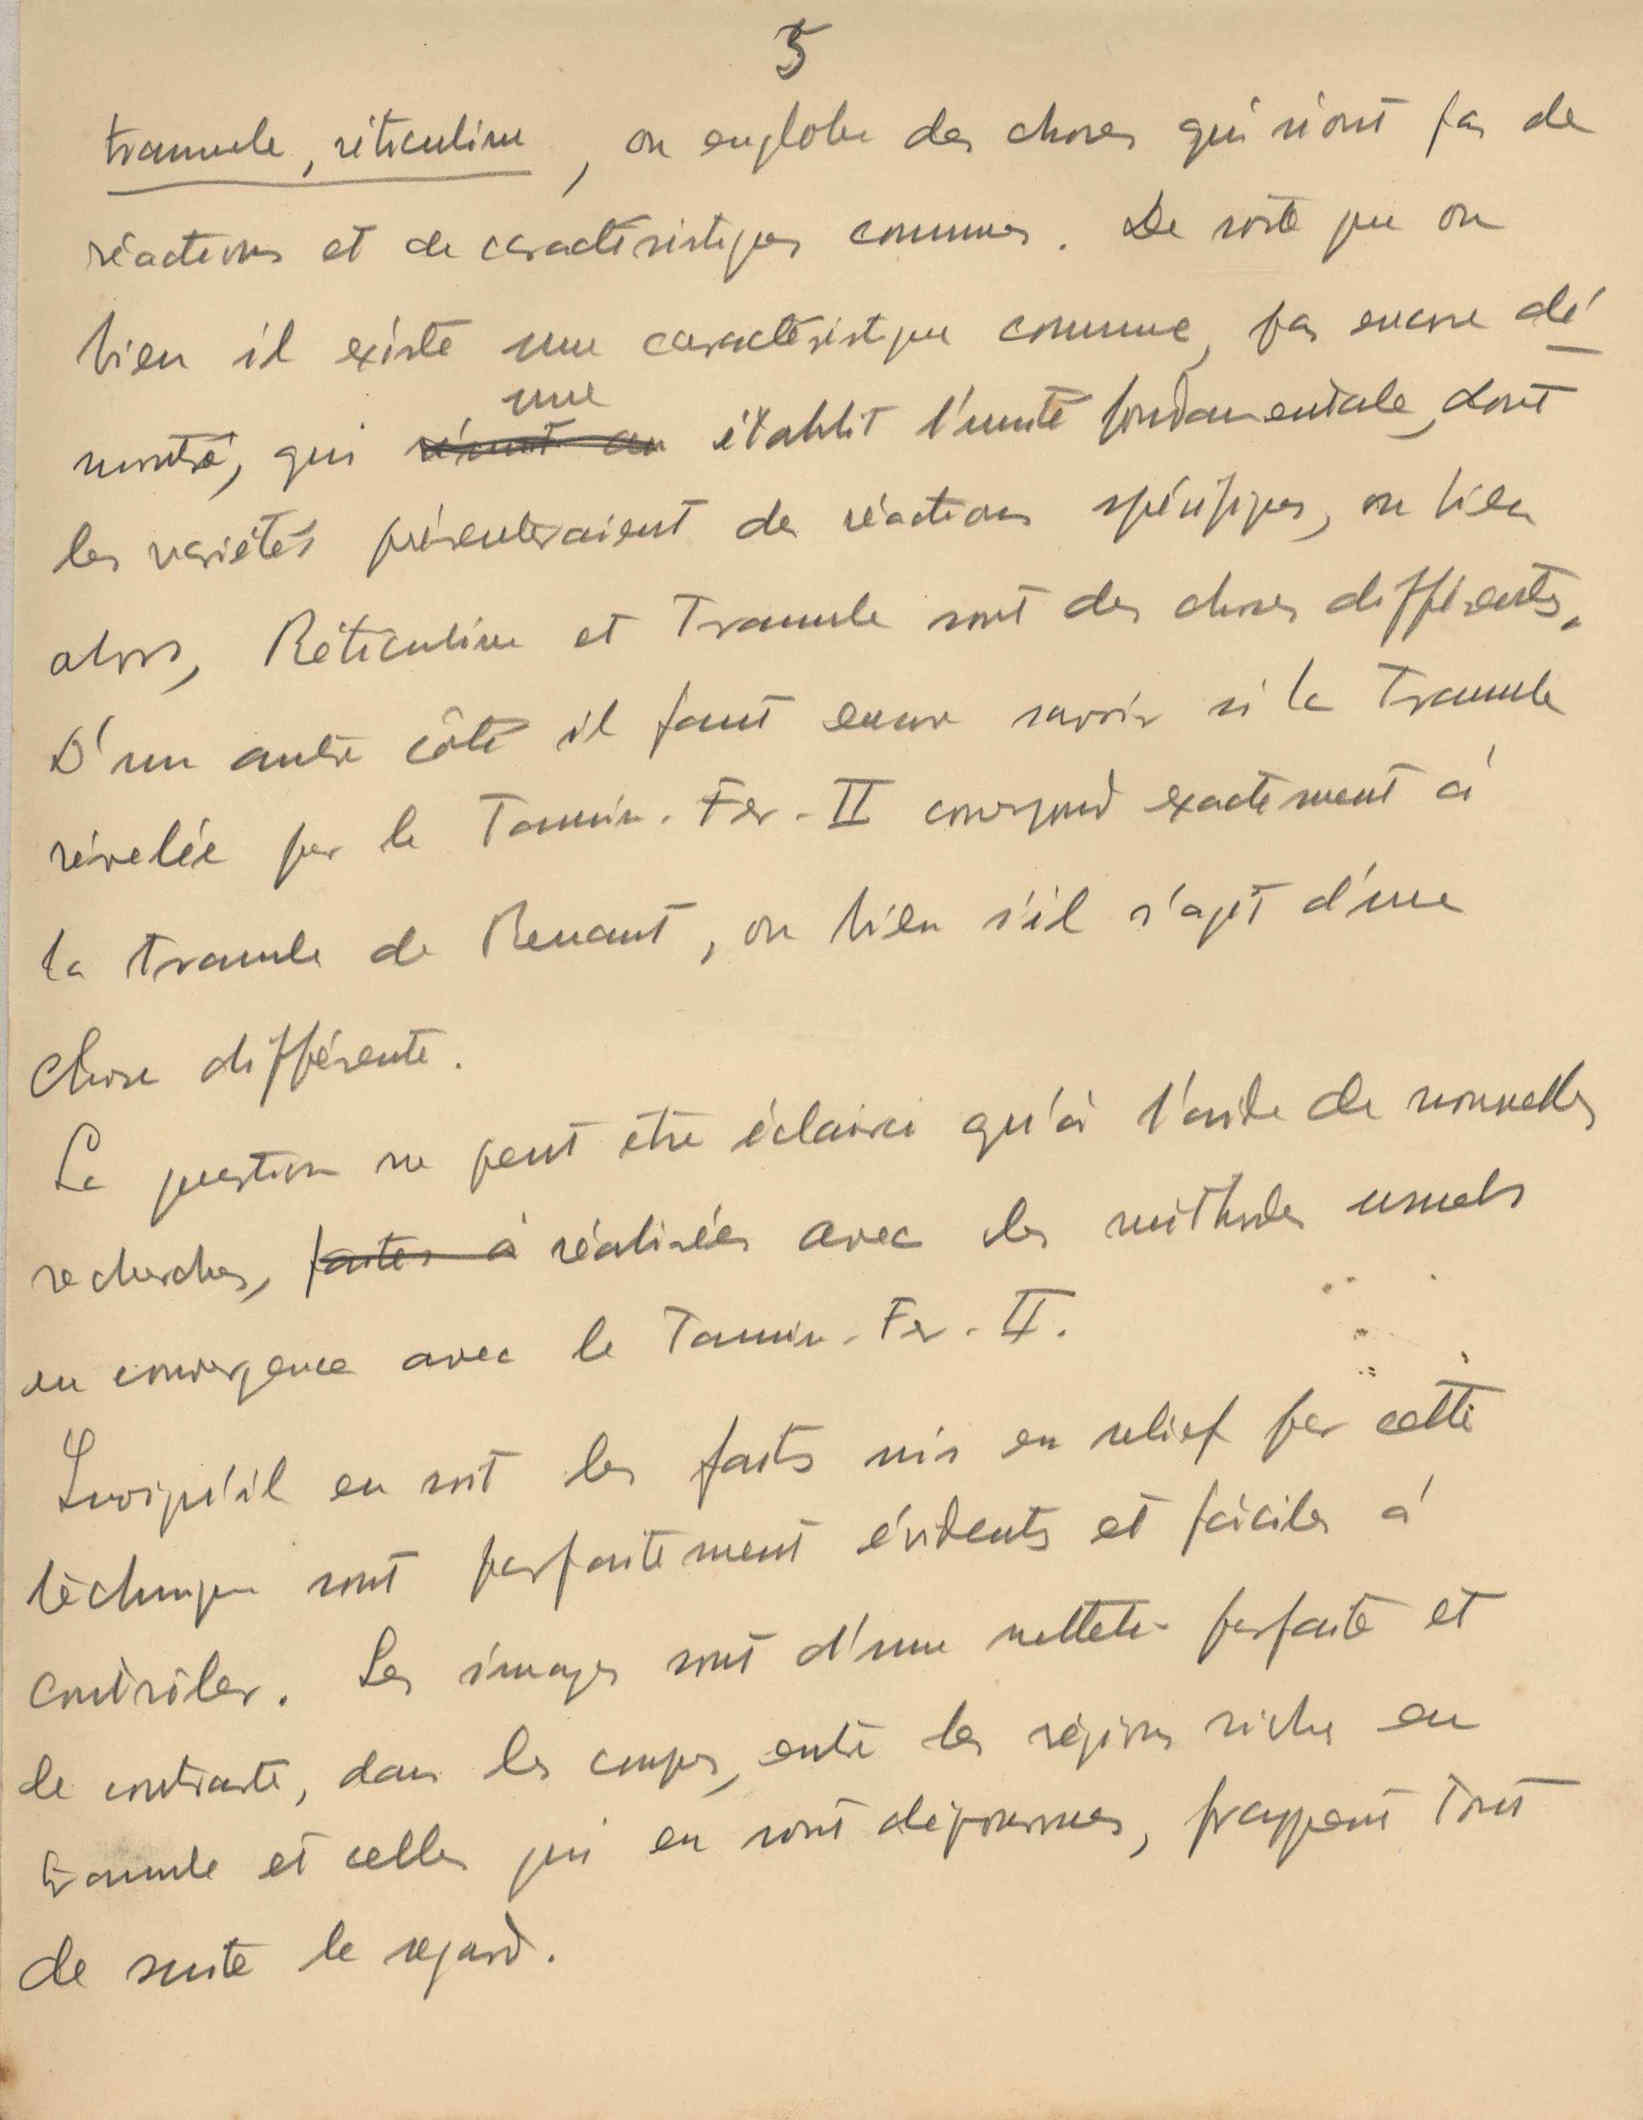 5
tramule, réticuline, on englobe des choses qui n'ont pas de
réactions et de caractéristiques communes. De sorte que ou
bien il existe une caractéristique commune, pas encore dé
montré, qui réunit en une établit l'unité fondamentale, dont
les variétés présenteraient des réactions spécifiques, ou bien
alors, Réticuline et Tramule sont des choses différentes.
D'un autre côté il faut encore savoir si la Tramule
révelée par le Tannin-Fer-II correspond exactement à
la tramule de Renaut, ou bien s'il s'agit d'une
chose différente.
La question ne peut être éclairci qu'à l'aide de nouvelles
recherches, faites à réalisées avec les méthodes usuels
en convergence avec le Tannin-Fer-II.
Quoiqu'il en soit les faits mis en relief par cette
téchnique sont parfaitement évidents et fáciles à
contrôler. Les images sont d'une netteté parfaite et
le contraste, dans les coupes, entre les régions riches en
tramule et celles qui en sont dépourvues, frappent tout
de suite le regard.